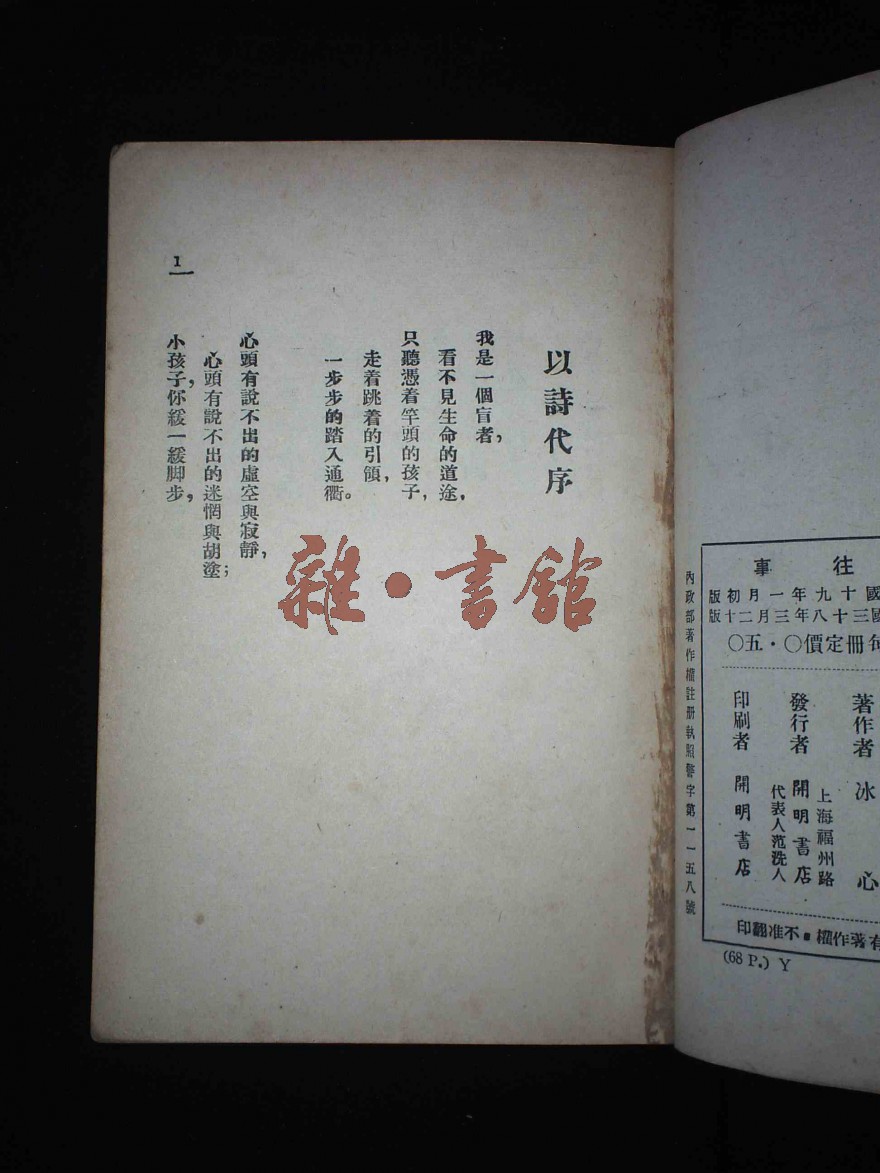 以詩代序
我是一個盲者，
看不見生命的道途，
只聽憑着竿頭的孩子，
走着跳着的引領，
一步步的踏入通衢。
心頭有說不出的虛空與寂靜，
心頭有說不出的迷惘與胡塗；
小孩子，你緩一緩脚步，
1
雜·書館
往事
國十九年一月初版
國三十八年三月二十版
每冊定價〇·五〇
著作者 冰心
發行者 開明書店
上海福州路
代表人范洗人
印刷者 開明書店
有著作權·不准翻印
內政部著作權註册執照警字第一一五八號
(68 P.) Y